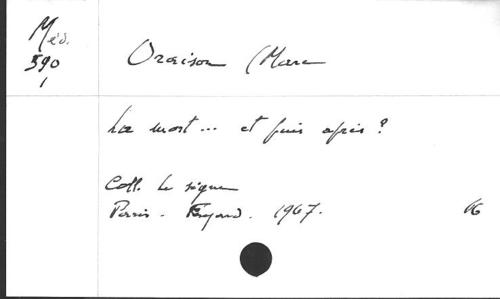 Méd.
590
1
Oraison (Marc
La mort... et puis après ?
Coll. Le signe
Paris - Fayard. 1967.